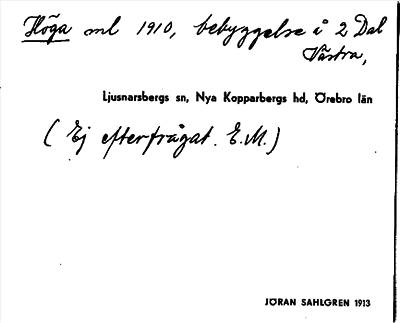 Höga ml 1910, bebyggelse i 2 Dal
Västra,
Ljusnarsbergs sn, Nya Kopparbergs hd, Örebro län
(Ej efterfrågat. E.M.)
JÖRAN SAHLGREN 1913